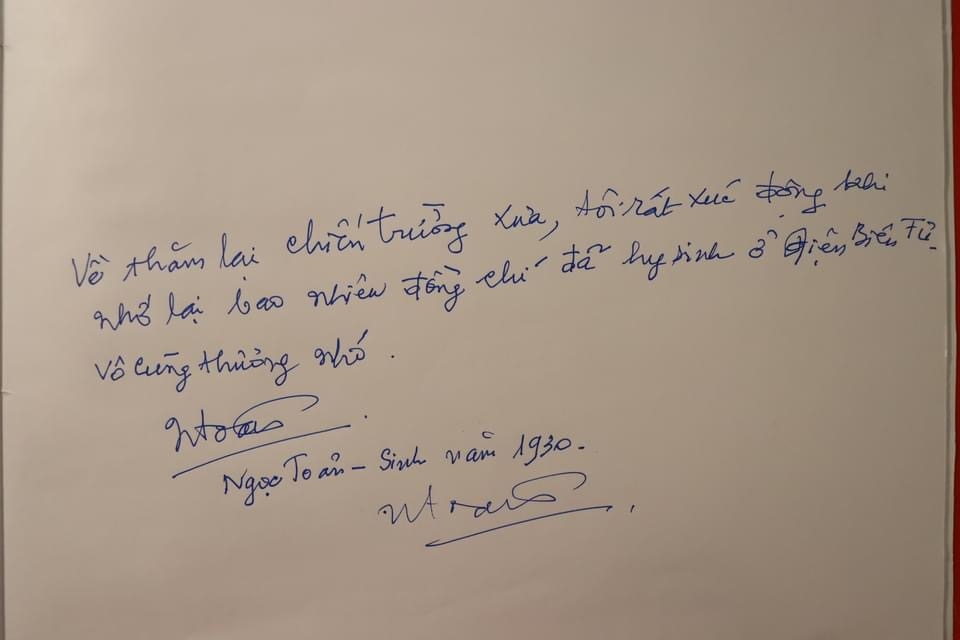 Về thăm lại chiến trường xưa, tôi rất xúc động khi
nhớ lại bao nhiêu đồng chí đã hy sinh ở Điện Biên Phủ
Vô cùng thương nhớ.
Ngọc Toản - Sinh năm 1930.